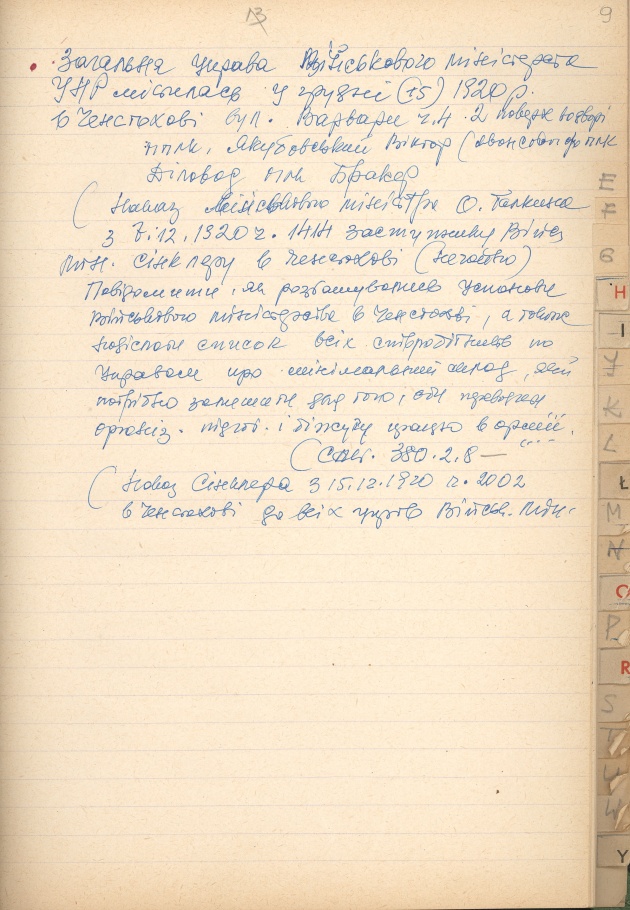 13
9
Загальна Управа Військового Міністерства
УНР містилась у грудні (15) 1920 р.
в Ченстохові вул. Варвари ч. 4. 2 поверх
ппплк. Якубовський Віктор
Діловод Бракер
(Наказ Військового Міністра О. Галкина
з 7.12.1920 ч. 144 заступнику Військ
Мін. Сінклеру в Ченстохові (негайно)
Повідомити, як розташувались Установи
Військового Міністерства в Ченстохові, а також
надіслати список всіх співробітників по
Управам про мінімальний склад, який
потрібно залишити для того, аби провадити
організ. підгот. і біжучу працю в армії.
380.2.8—
(Наказ Сінклера з 15.12.1920 ч. 2002
в Ченстохові до всіх управ Військ. Мін.
E
F
G
H
I
J
K
L
Ł
M
N
O
P
R
S
T
U
W
Y